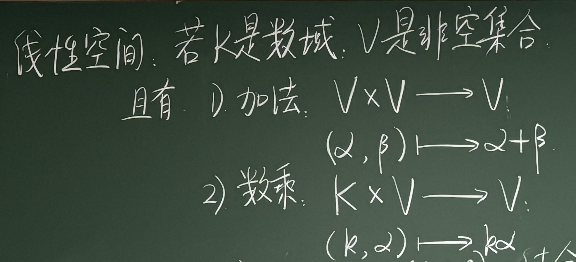 线性空间: 若K是数域. V是非空集合.
且有 1) 加法: V×V ⟶ V;
(α, β) ⟼ α+β.
2) 数乘: K×V ⟶ V;
(k, α) ⟼ kα